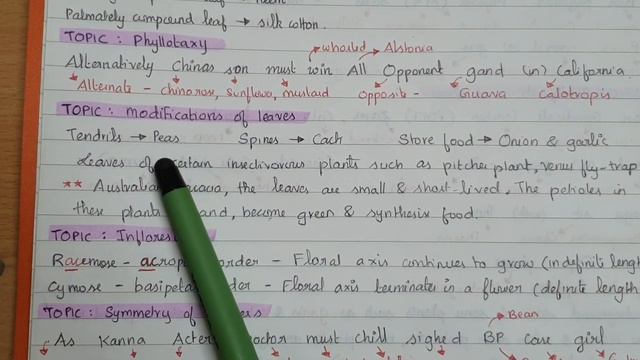 Palmately compound leaf → silk cotton.
TOPIC : Phyllotaxy
→ whorled → Alstonia
Alternatively Chinas son must win All Opponent gand (in) California
Alternate - china rose, sunflower, mustard Opposite - Guava Calotropis
TOPIC : modifications of leaves
Tendrils → Peas Spines → Cacti Store food → Onion & garlic
Leaves of certain insectivorous plants such as pitcher plant, venus fly-trap
** Australian the leaves are small & short-lived. The petioles in
these plants become green & synthesis food.
TOPIC : Inflores
Racemose - order - Floral axis continues to grow (indefinite length
Cymose - order - Floral axis terminates in a flower (definite length
TOPIC : Symmetry of
→ Bean
As Kanna must chill sighed BP case girl